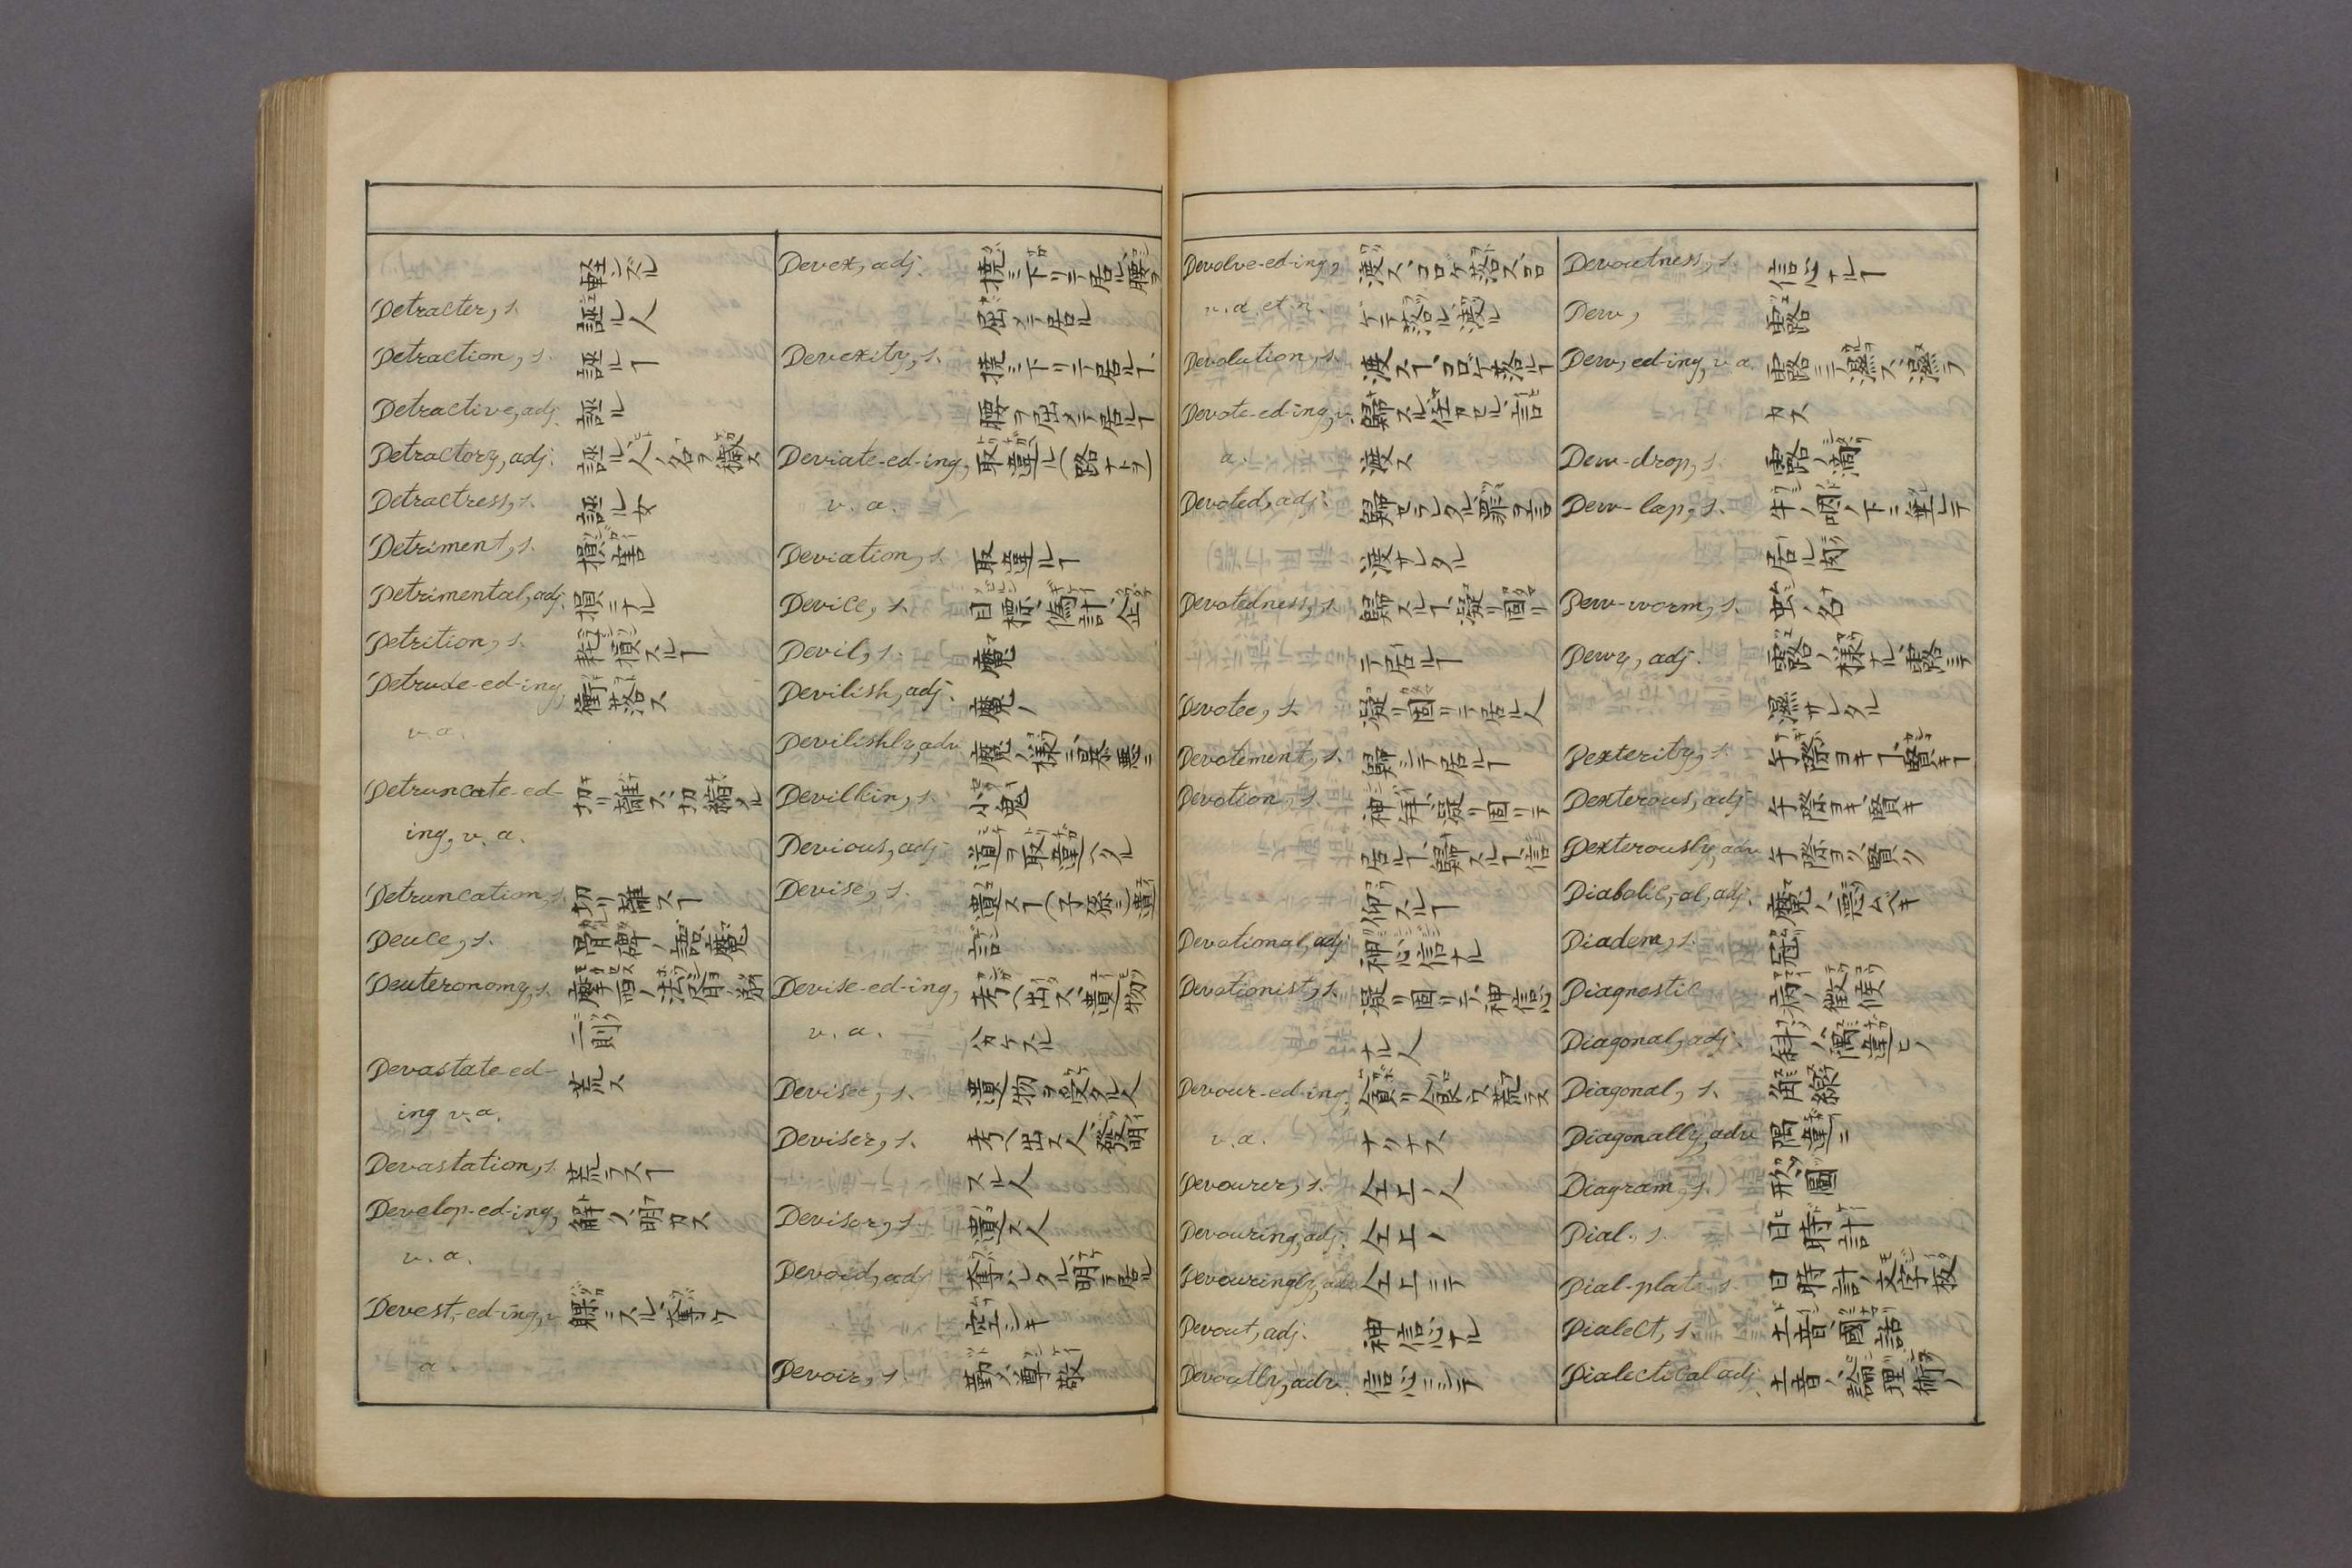 輕ンズル
Detracter, s. 誣ル人
Detraction, s. 誣ルヿ
Detractive, adj. 誣ル
Detractory, adj. 誣ル、人ノ名ヲ穢ス
Detractress, s. 誣ル女
Detriment, s. 損害
Detrimental, adj. 損ニナル
Detrition, s. 耗損スルヿ
Detrude-ed-ing, 衝落ス
v. a.
Detruncate-ed- 切リ離ス、切縮メル
ing, v. a.
Detruncation, s. 切リ離スヿ
Deuce, s. 骨牌ノ語、魔
Deuteronomy, s. 摩西ノ法角ノ第
二則
Devastate-ed- 荒ス
ing v. a.
Devastation, s. 荒ラスヿ
Develop-ed-ing, 解ク、明カス
v. a.
Devest,-ed-ing, v. 躶ニスル、奪フ
a.
Devex, adj. 撓ミ下リテ居ル、腰ヲ
屈メテ居ル
Devexity, s. 撓ミ下リテ居ルヿ、
腰ヲ屈メテ居ルヿ
Deviate-ed-ing, 取違ル(路ナトヲ)
v. a.
Deviation, s. 取違ルヿ
Device, s. 目標、偽計、企
Devil, s. 魔
Devilish, adj. 魔ノ
Devilishly, adv. 魔ノ様ニ、暴悪ニ
Devilkin, s. 小鬼
Devious, adj. 道ヲ取違ヘタル
Devise, s. 遺スヿ(子孫ニ)遺
言
Devise-ed-ing, 考ヘ出ス、遺物
v. a. 分ケスル
Devisee, s. 遺物ヲ受タル人
Deviser, s. 考ヘ出ス人、發明
スル人
Devisor, s. 遺ス人
Devoid, adj. 奪ハレタル、明テ居ル
空シキ
Devoir, s. 勤メ、尊敬
Devolve-ed-ing, 渡ス、コロゲ落ス、コロ
v. a. et n. ゲテ落ル、渡ル
Devolution, s. 渡スヿ、コロゲ落ルヿ
Devote-ed-ing, v. 歸スル、任カセル、言
a. 渡ス
Devoted, adj. 歸セラレタル、罪ヲ言
渡サレタル
Devotedness, s. 歸スルヿ、凝リ固リ
テ居ルヿ
Devotee, s. 凝リ固リテ居ル人
Devotement, s. 歸シテ居ルヿ
Devotion, s. 神拜、凝リ固リテ
居ルヿ、歸スルヿ、信
仰スルヿ
Devotional, adj. 神心信ナル
Devotionist, s. 凝リ固リテ、神信心
ナル人
Devour-ed-ing, 貪リ食フ、荒ラス
v. a. ナリナス
Devourer, s. 仝上ノ人
Devouring, adj. 仝上ノ
Devouringly, adv. 仝上ニテ
Devout, adj. 神信心ナル
Devoutly, adv. 信心ニシテ
Devoutness, s. 信心ナルヿ
Dew, 露
Dew, ed-ing, v. a. 露ニテ濕ラス、濕ラ
カス
Dew-drop, s. 露ノ滴
Dew-lap, s. 牛ノ咽ノ下ニ垂レテ
居ル肉
Dew-worm, s. 虫ノ名
Dewy, adj. 露ノ様ナル、露ニテ
濕サレタル
Dexterity, s. 手際ヨキヿ、賢キヿ
Dexterous, adj. 手際ヨキ、賢キ
Dexterously, adv. 手際ヨク、賢ク
Diabolic,-al, adj. 魔ノ、悪ムベキ
Diadem, s. 冠
Diagnostic 病ノ徴候
Diagonal, adj. 斜ノ、隅違ヒノ
Diagonal, s. 斜線
Diagonally, adv. 隅違ニ
Diagram, s. 形、圖
Dial, s. 日時計
Dial-plate, s. 日時計ノ文字板
Dialect, s. 土音、國語
Dialectical adj. 土音ノ、論理術ノ